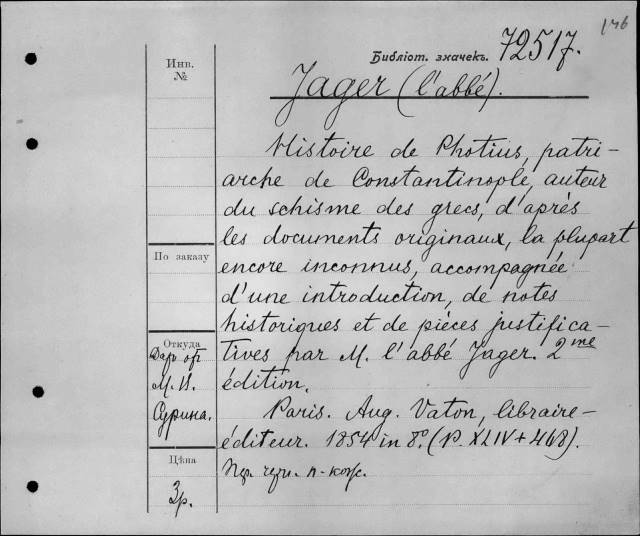 146
Библіот. значекъ. 72517.
Инв.
№
Jager (l'abbé).
Histoire de Photius, patri-
arche de Constantinople, auteur
du schisme des grecs, d'après
les documents originaux, la plupart
encore inconnus, accompagnée
d'une introduction, de notes
historiques et de pièces justifica-
tives par M. l'abbé Jager. 2me
édition.
Paris. Aug. Vaton, libraire-
éditeur. 1854 in 8º. (P. XLIV + 468).
По заказу
Откуда
Даръ отъ
М. И.
Сурина.
Цѣна
3р.